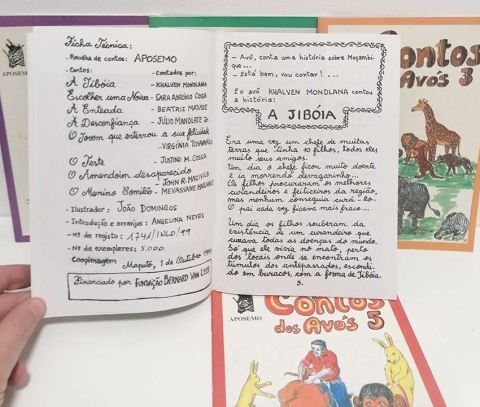 Ficha Técnica:
- Recolha de contos: APOSEMO
- Contos:
- Contados por:
A Jibóia
- KHALVEN MONDLANA
Escolher uma Noiva
- SARA ANTÓNIO COSSA
A Enteada
- BEATRIZ MATUSSE
A Desconfiança
- JÚLIO MANDLATE Jr.
O Jovem que enterrou a sua felicidade
- VIRGÍNIA
O Teste
- JUSTINO M. COSSA
O Amendoim desaparecido
- JOHN R.
O Menino Comilão
- Ilustrador: JOÃO DOMINGOS
- Introdução e arranjos: ANGELINA NEVES
- Nº de registo: 1741/INLD/99
- Nº de exemplares: 5.000
Coopimagem
Maputo, 1 de Outubro
Financiado por FUNDAÇÃO BERNARD VAN LEER
- Avó, conta uma história sobre Moçambi
que...
- Está bem, vou contar! ...
E o avô KHALVEN MONDLANA contou
a história:
A JIBÓIA
Era uma vez um chefe de muitas
terras que tinha 10 filhos, todos eles
muito seus amigos.
Um dia o chefe ficou muito doente
e ia morrendo devagarinho...
Os filhos procuraram os melhores
curandeiros e feiticeiros da região,
mas nenhum conseguia curá-lo.
O pai cada vez ficava mais fraco...
Um dia os filhos souberam da
existência de um curandeiro que
curava todas as doenças do mundo.
Só que ele vivia no mato, perto
dos locais onde se encontram os
túmulos dos antepassados, escondi-
do em buracos, com a forma de Jibóia.
3.
APOSEMO
Contos
Avós 3
APOSEMO
Contos
dos Avós 5